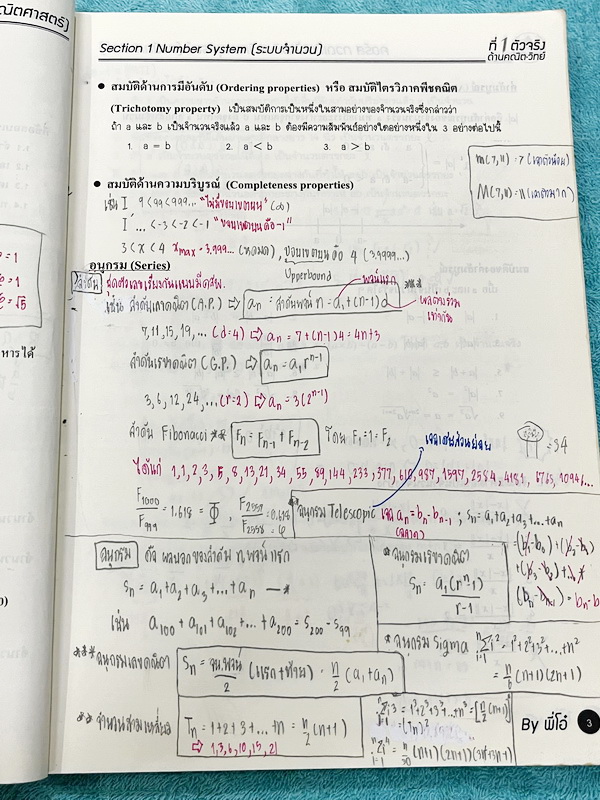 ณิตศาสตร์)
Section 1 Number System (ระบบจำนวน)
ที่ 1 ตัวจริง
ด้านคณิต-วิทย์
• สมบัติด้านการมีอันดับ (Ordering properties) หรือ สมบัติไตรวิภาคพีชคณิต
(Trichotomy property) เป็นสมบัติการเป็นหนึ่งในสามอย่างของจำนวนจริงซึ่งกล่าวว่า
ถ้า a และ b เป็นจำนวนจริงแล้ว a และ b ต้องมีความสัมพันธ์อย่างใดอย่างหนึ่งใน 3 อย่างต่อไปนี้
1. a = b 2. a < b 3. a > b
m(7,11) = 7 (เอาตัวน้อย)
M(7,11) = 11 (เอาตัวมาก)
• สมบัติด้านความบริบูรณ์ (Completeness properties)
เช่น I 9<99<999... "ไม่มีขอบเขตบน" (∞)
I⁻ ... <-3<-2<-1 "ขอบเขตบนคือ -1"
3 < x < 4 x max = 3.999... , ขอบเขตบน คือ 4 (3.9999...)
Upperbound
อนุกรม (Series)
ลำดับ ชุดตัวเลขเรียงกันแบบมี
เช่น ลำดับเลขคณิต (A.P.) ⇨ an = ลำดับพจน์ n = a1+(n-1)d
พจน์แรก
ผลต่างร่วม
เท่ากัน
7,11,15,19,... (d=4) ⇨ an = 7+(n-1)4 = 4n+3
ลำดับเรขาคณิต (G.P.) ⇨ an = a1 r^(n-1)
3,6,12,24,... (r=2) ⇨ an = 3(2^(n-1))
ลำดับ Fibonacci ** Fn = Fn-1 + Fn-2 โดย F1=1=F2
ได้แก่ 1,1,2,3,5,8,13,21,34,55,89,144,233,377,610,987,1597,2584,4181,6765,10946...
F1000/F999 = 1.618 = Φ , F2557/F2558 = 0.618 = φ
อนุกรม Telescopic an = bn - bn-1 ; Sn = a1+a2+a3+...+an
อนุกรม คือ ผลบวกของลำดับ n พจน์แรก
Sn = a1+a2+a3+...+an
เช่น a100+a101+a102+...+a200 = S200 - S99
* อนุกรมเรขาคณิต
Sn = a1(r^n-1)/r-1
*** อนุกรมเลขคณิต Sn = จน.พจน์/2 (แรก+ท้าย) = n/2 (a1+an)
* อนุกรม Sigma Σ i² = 1²+2²+3²+...+n²
= n/6 (n+1)(2n+1)
** จำนวนสามเหลี่ยม Tn = 1+2+3+...+n = n/2 (n+1)
⇨ 1,3,6,10,15,21
Σ i³ = 1³+2³+3³+...+n³ = [n/2 (n+1)]²
= (Tn)²
By พี่โอ๋ 3